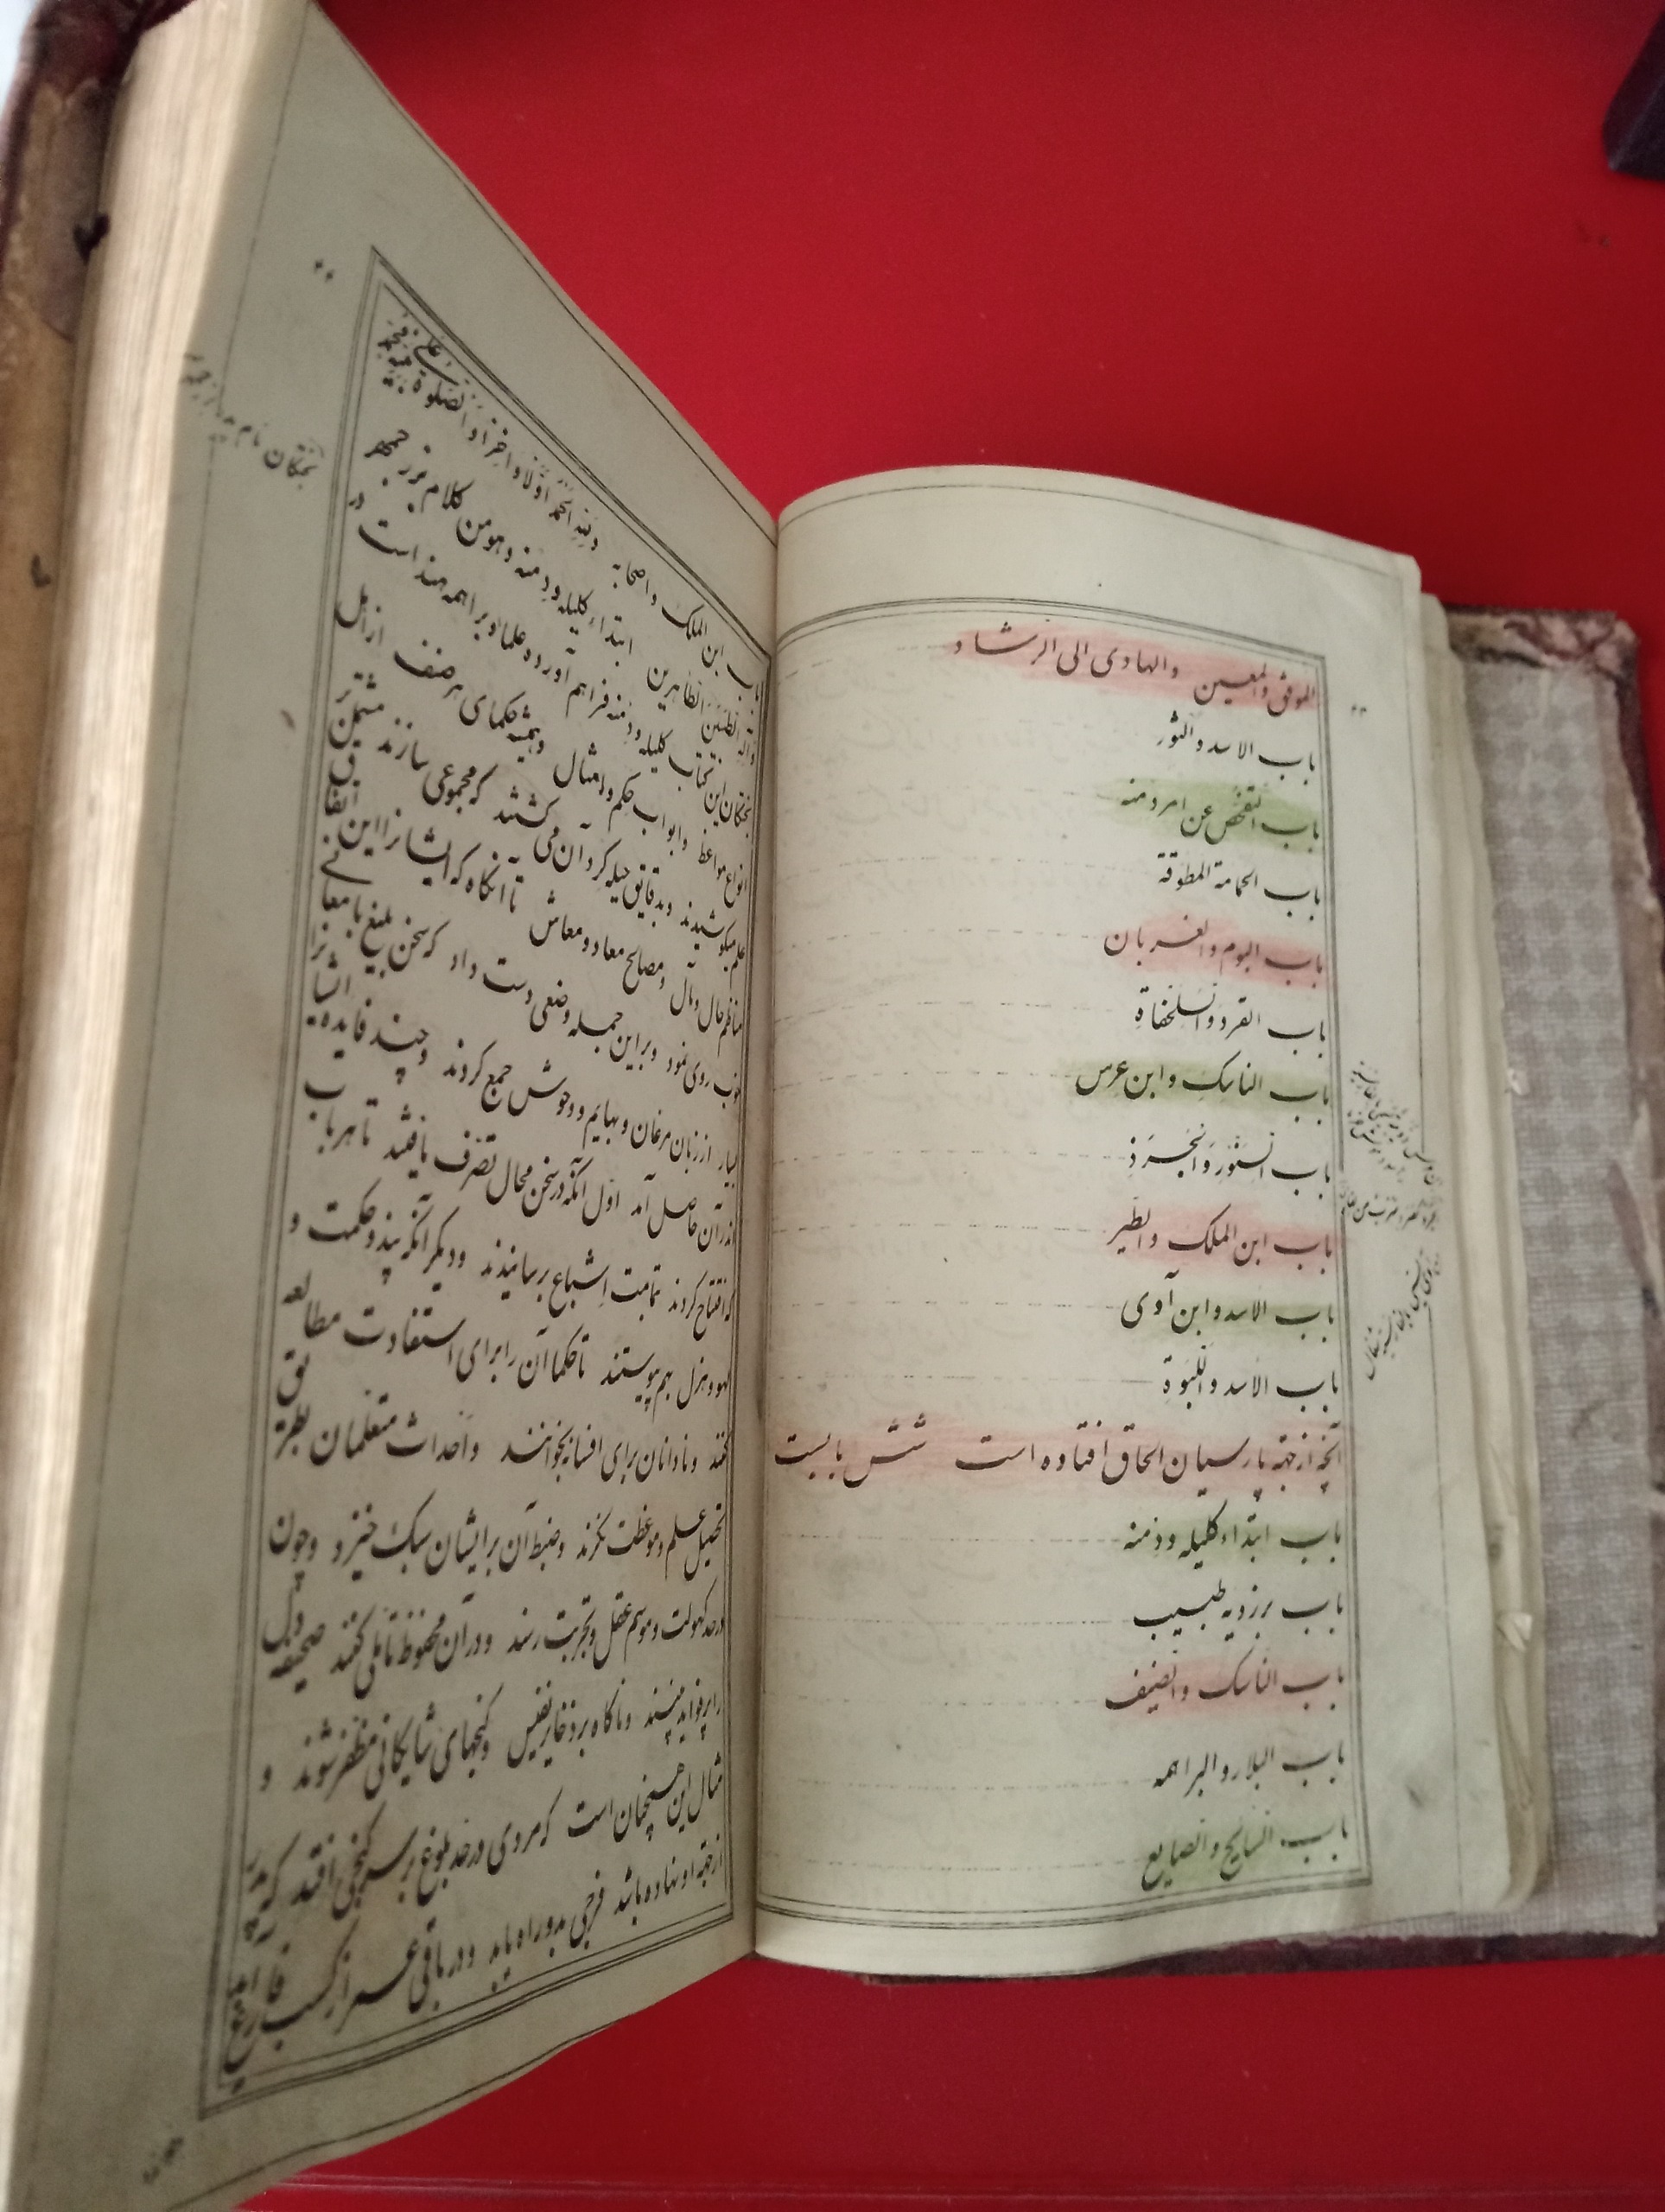 الموفق والمعین والهادی الی الرشاد
باب الاسد والثور
باب التفحص عن امر دمنه
باب الحمامة المطوقة
باب البوم والغربان
باب القرد والسلحفاة
باب الناسک وابن عرس
باب السنور والجرذ
باب ابن الملک والطیر
باب الاسد وابن آوی
باب الاسد واللبوة
آنچه از جهة پارسیان الحاق افتاده است شش بابست
باب ابتداء کلیله و دمنه
باب برزویه طبیب
باب الناسک والضیف
باب البلار والبراهمه
باب السایح والصایع
باب ابن الملک واصحابه ولله الحمد اولا و اخرا والصلوة علی محمد
واله الطیبین الطاهرین ابتداء کلیله و دمنه و هو من کلام بزرجمهر
بختکان این کتاب کلیله و دمنه فراهم آورده علما و براهمه هند است در
انواع مواعظ و ابواب حکم و امثال و همیشه حکمای هر صنف از اهل
علم میکوشیدند و بدقایق حیله کرد آن می کشتند که مجموعی سازند مشتمل بر
مناظم حال و مآل و مصالح معاد و معاش تا آنکاه که ایشانرا این اتفاق
خوب روی نمود و بر این جمله وضعی دست داد که سخن بلیغ با معانی
بسیار از زبان مرغان و بهایم و وحوش جمع کردند و چند فایده ایشانرا
اندر آن حاصل آمد اول آنکه در سخن مجال تصرف یافتند تا هر باب
که افتتاح کردند بتمامت اشباع برسانیدند و دیکر آنکه پند و حکمت و
لهو و هزل بهم پیوستند تا حکما آن را برای استفادت مطالعه
کنند و نادانان برای افسانه بخوانند و احداث متعلمان بطریق
تحصیل علم و موعظت نکرند و ضبط آن بر ایشان سبک خیزد و چون
در حد کهولت و موسم عقل و تجربت رسند و در آن محفوظ تاملی کنند صحیفه دل
را پر فواید بینند و ناکاه بر ذخایر نفیس و کنجهای شایکانی مظفر شوند و
مثال این همچنان است که مردی در حد بلوغ بر سر کنجی افتد که پدر
از جهة او نهاده باشد فرحی بدو راه یابد و در باقی عمر از کسب فارغ آید
بختکان نام پدر بزرجمهر